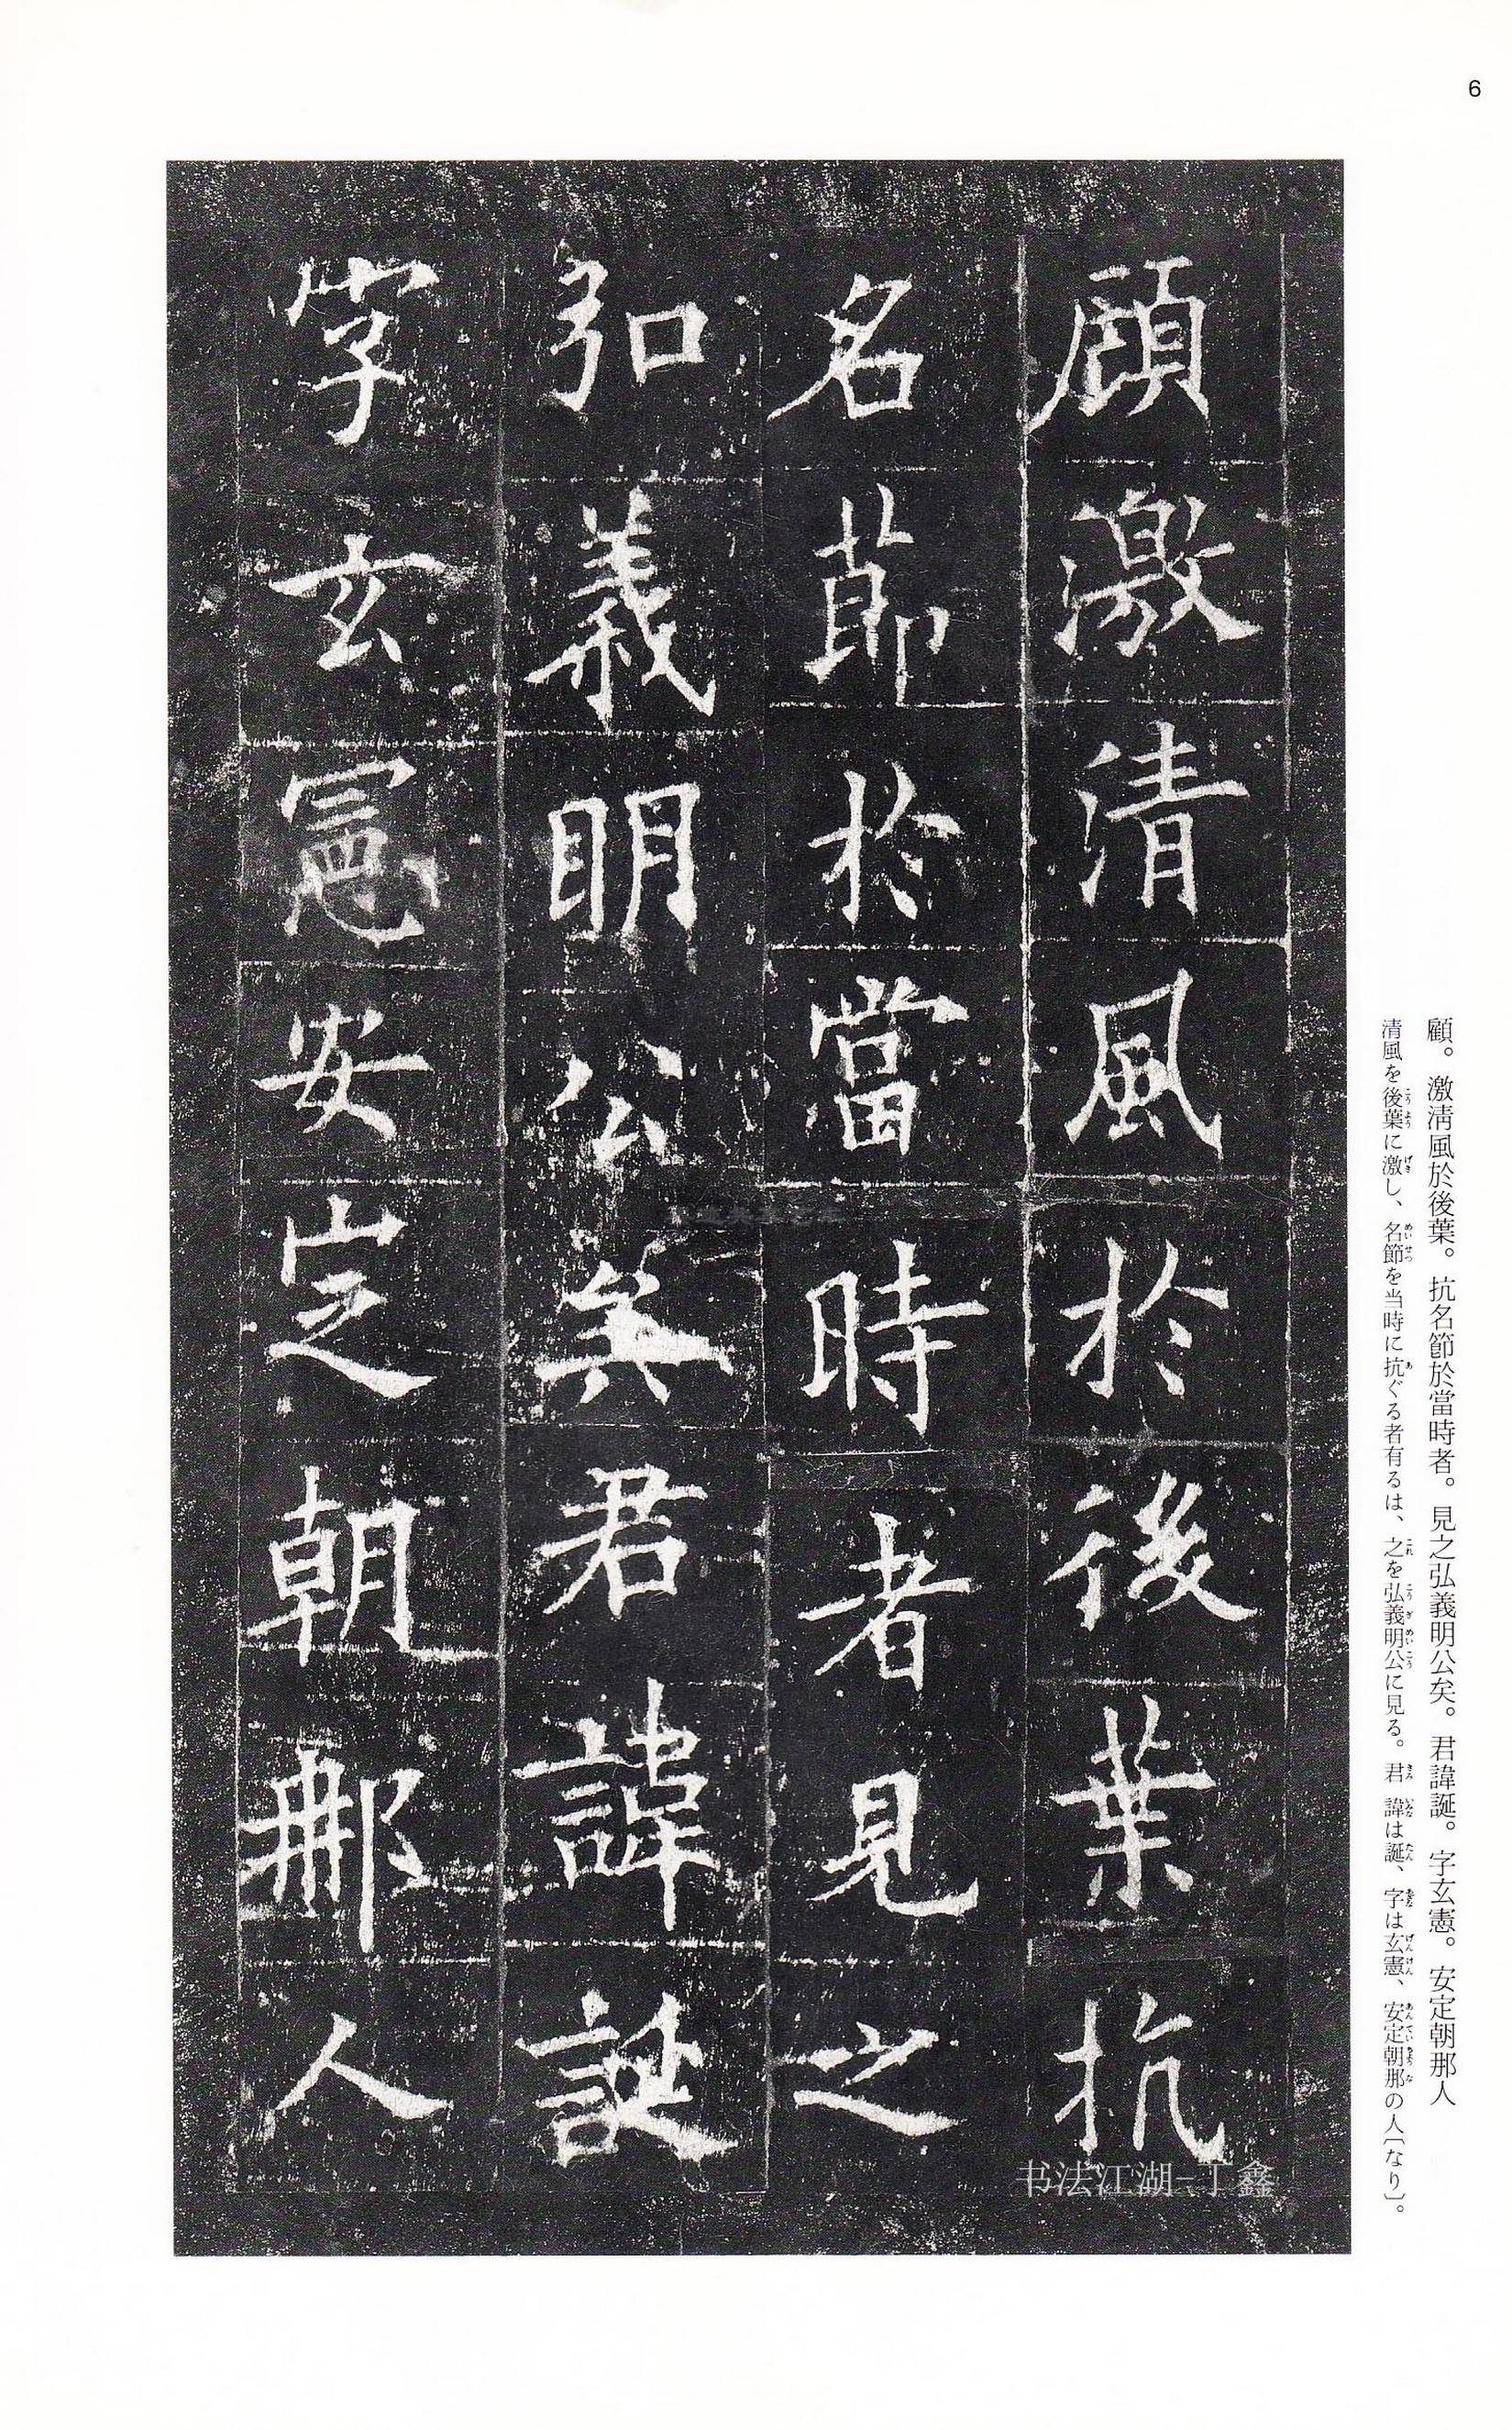 6
顧激清風於後葉抗
名節於當時者見之
弘義明公矣君諱誕
字玄憲安定朝那人
顧。激清風於後葉。抗名節於當時者。見之弘義明公矣。君諱誕。字玄憲。安定朝那人
清風を後葉に激し、名節を当時に抗ぐる者有るは、之を弘義明公に見る。君諱は誕、字は玄憲、安定朝那の人〔なり〕。
书法江湖-丁鑫